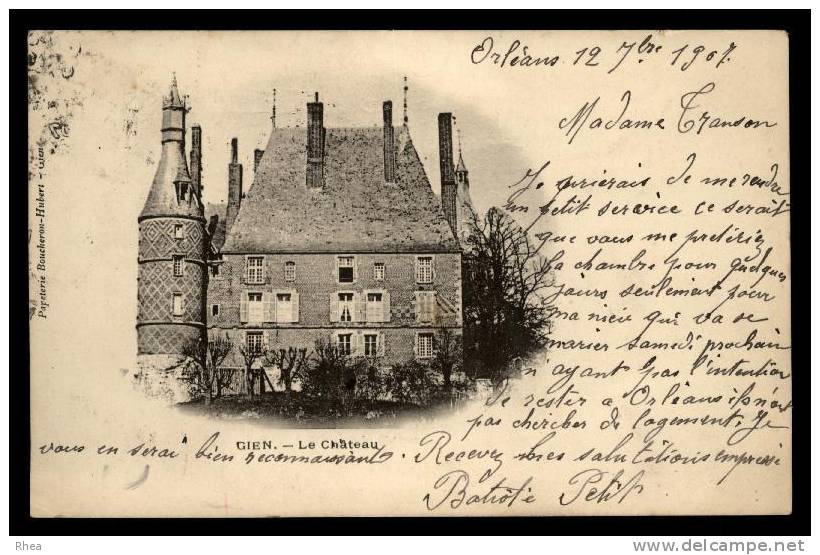 Orléans 12 7bre 1907
Madame Transon
Je prierais de me rendre
un petit service ce serait
que vous me prêteriez
la chambre pour quelques
jours seulement pour
ma nièce qui va se
marier samedi prochain
n'ayant pas l'intention
de rester a Orléans ils n'ont
pas chercher de logement. Je
vous en serai bien reconnaissante. Recevez mes salutations empressé
Batiste Petit
GIEN. — Le Château
Papeterie Boucheron-Hubert - Gien
Rhea
http://www.delcampe.net